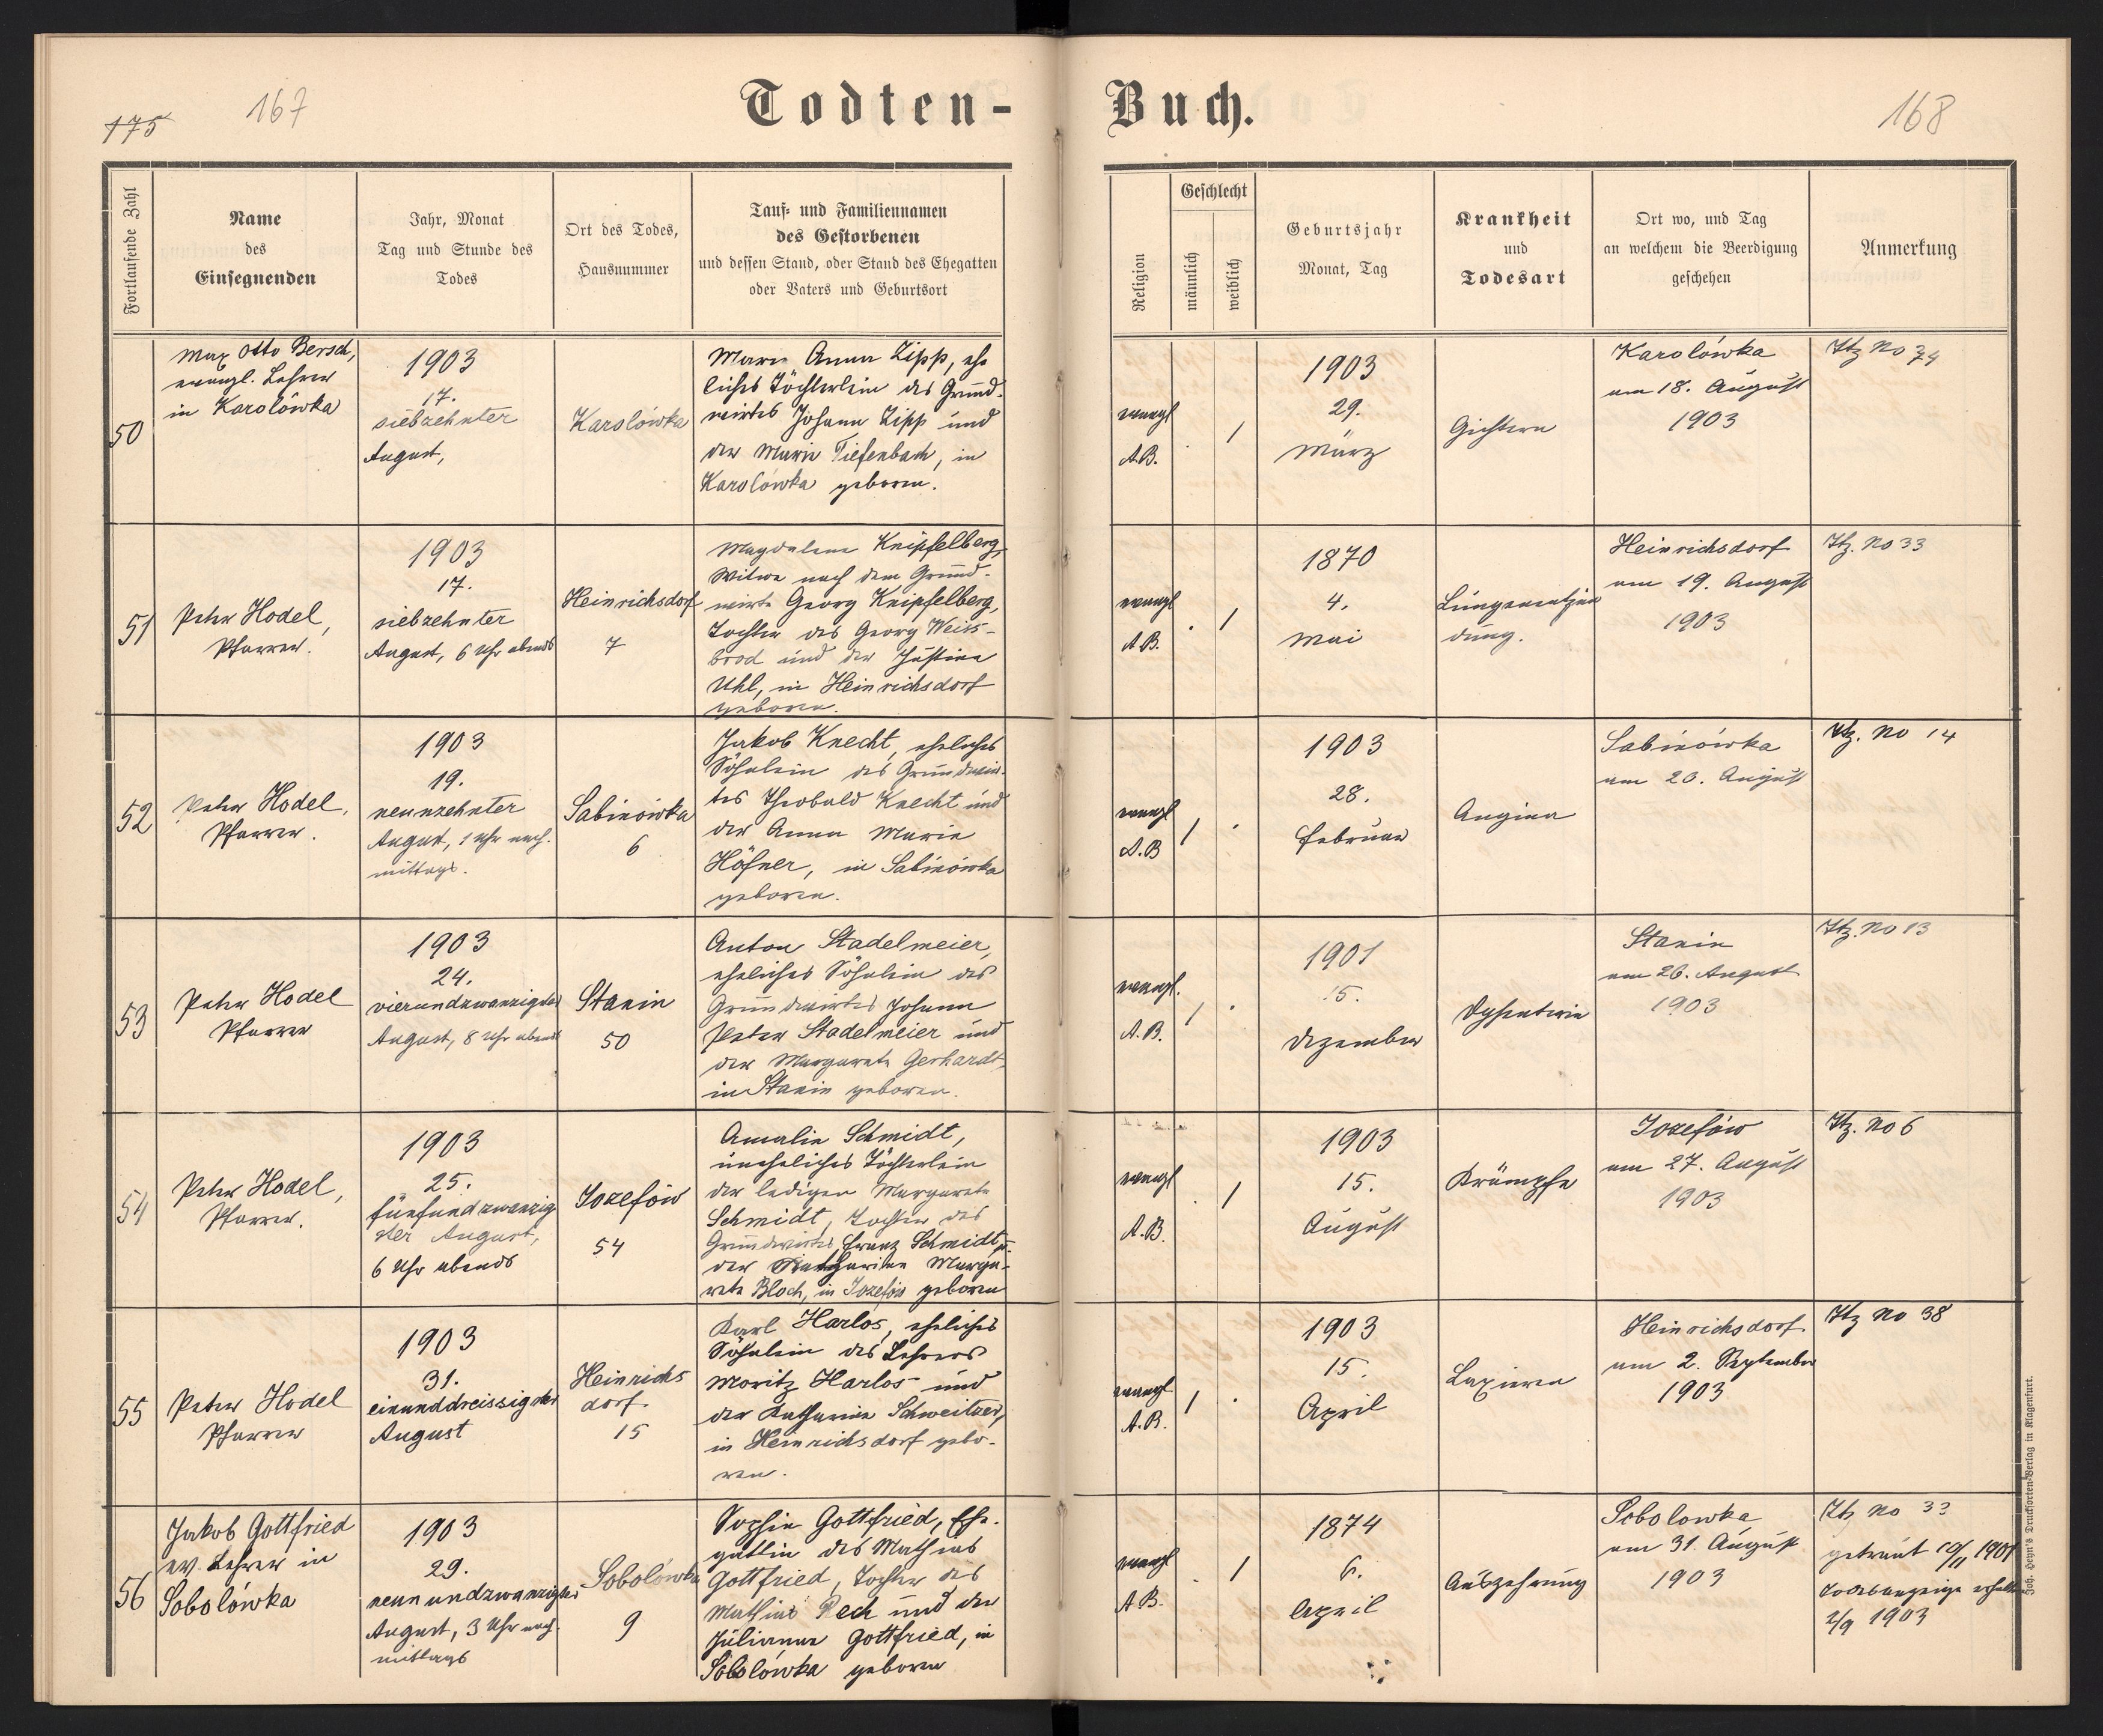 175
167
Todten-
Buch.
168
Fortlaufende Zahl
Name
des
Einsegnenden
Jahr, Monat
Tag und Stunde des
Todes
Ort des Todes,
Hausnummer
Tauf- und Familiennamen
des Gestorbenen
und dessen Stand, oder Stand des Ehegatten
oder Vaters und Geburtsort
Religion
Geschlecht
männlich
weiblich
Geburtsjahr
Monat, Tag
Krankheit
und
Todesart
Ort wo, und Tag
an welchem die Beerdigung
geschehen
Anmerkung
50
Max Otto Bersch,
evangl. Lehrer
in Karolówka
1903
17.
siebzehnter
August,
Karolówka
Marie Anna Zipp, ehe
liches Töchterlein des Grund-
wirtes Johann Zipp und
der Marie Tiefenbach, in
Karolówka geboren.
evangl
A.B.
. /
1903
29.
März
Gichtern
Karolówka
am 18. August
1903
Itz No 74
51
Peter Hodel,
Pfarrer.
1903
17.
siebzehnter
August, 6 Uhr abends
Heinrichsdorf
7
Magdalena Knipfelberg,
Witwe nach dem Grund-
wirte Georg Knipfelberg,
Tochter des Georg Weiss-
brod und der Justina
Uhl, in Heinrichsdorf
geboren.
evangl
A.B.
. /
1870
4.
Mai
Lungenentzün
dung.
Heinrichsdorf
am 19. August
1903
Itz. No 33
52
Peter Hodel,
Pfarrer.
1903
19.
neunzehnter
August, 1 Uhr nach-
mittags.
Sabinówka
6
Jakob Knecht, eheliches
Söhnlein des Grundwir-
tes Theobald Knecht und
der Anna Maria
Höfner, in Sabinówka
geboren.
evangl
A.B
/ .
1903
28.
Februar
Angina
Sabinówka
am 20. August
Itz. No 14
53
Peter Hodel
Pfarrer
1903
24.
vierundzwanzigster
August, 8 Uhr abends
Stanin
50
Anton Stadelmeier,
eheliches Söhnlein des
Grundwirtes Johann
Peter Stadelmeier und
der Margareta Gerhardt,
in Stanin geboren.
evangl.
A.B.
/ .
1901
15.
Dezember
Dysenterie
Stanin
am 26. August
1903
Itz. No 13
54
Peter Hodel,
Pfarrer.
1903
25.
fünfundzwanzig
ster August,
6 Uhr abends
Jozefów
54
Amalie Schmidt,
uneheliches Töchterlein
der ledigen Margareta
Schmidt, Tochter des
Grundwirtes Franz Schmidt u.
der Katharina Marga-
reta Bloch, in Jozefów geboren
evangl
A.B.
. /
1903
15.
August
Krämpfe
Jozefów
am 27. August
1903
Itz. No 6
55
Peter Hodel
Pfarrer
1903
31.
einunddreissigster
August
Heinrichs
dorf
15
Karl Harlos, eheliches
Söhnlein des Lehrers
Moritz Harlos und
der Katharina Schweitzer,
in Heinrichsdorf gebo-
ren.
evangl
A.B.
/ .
1903
15.
April
Laxieren
Heinrichsdorf
am 2. September
1903
Itz No 38
56
Jakob Gottfried
ev. Lehrer in
Sobolówka
1903
29.
neunundzwanzigster
August, 3 Uhr nach-
mittags
Sobolówka
9
Sophie Gottfried, Ehe-
gattin des Mathias
Gottfried, Tochter des
Mathias Rech und der
Juliana Gottfried, in
Sobolówka geboren
evangl
A.B.
. /
1874
6.
April
Auszehrung
Sobolowka
am 31. August
1903
Itz No 33
getraut 10/11 1901
Todesanzeige erhalten
2/9 1903
Joh. Heyn's Drucksorten-Verlag in Klagenfurt.